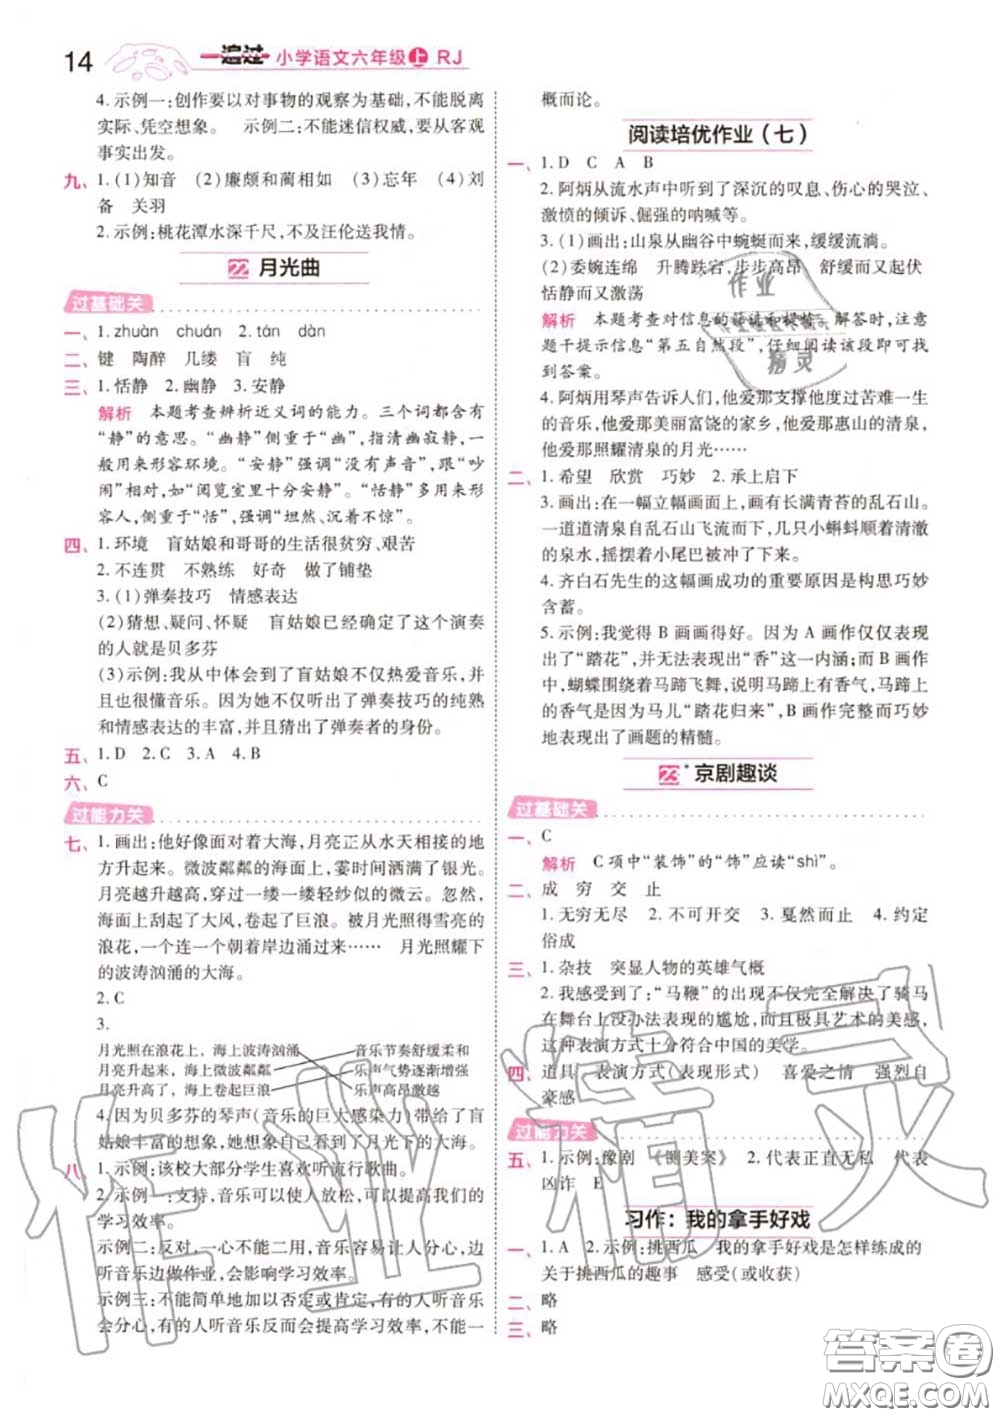 14 一遍过 小学语文六年级上 RJ
4. 示例一:创作要以对事物的观察为基础,不能脱离
实际、凭空想象。 示例二:不能迷信权威,要从客观
事实出发。
九、1. (1)知音 (2)廉颇和蔺相如 (3)忘年 (4)刘
备 关羽
2. 示例:桃花潭水深千尺,不及汪伦送我情。
22 月光曲
过基础关
一、1. zhuàn chuán 2. tán dàn
二、键 陶醉 几缕 盲 纯
三、1. 恬静 2. 幽静 3. 安静
解析 本题考查辨析近义词的能力。三个词都含有
“静”的意思。“幽静”侧重于“幽”,指清幽寂静,一
般用来形容环境。“安静”强调“没有声音”,跟“吵
闹”相对,如“阅览室里十分安静”。“恬静”多用来形
容人,侧重于“恬”,强调“坦然、沉着不惊”。
四、1. 环境 盲姑娘和哥哥的生活很贫穷、艰苦
2. 不连贯 不熟练 好奇 做了铺垫
3. (1)弹奏技巧 情感表达
(2)猜想、疑问、怀疑 盲姑娘已经确定了这个演奏
的人就是贝多芬
(3)示例:我从中体会到了盲姑娘不仅热爱音乐,并
且也很懂音乐。因为她不仅听出了弹奏技巧的纯熟
和情感表达的丰富,并且猜出了弹奏者的身份。
五、1. D 2. C 3. A 4. B
六、C
过能力关
七、1. 画出:他好像面对着大海,月亮正从水天相接的地
方升起来。微波粼粼的海面上,霎时间洒满了银光。
月亮越升越高,穿过一缕一缕轻纱似的微云。忽然,
海面上刮起了大风,卷起了巨浪。被月光照得雪亮的
浪花,一个连一个朝着岸边涌过来…… 月光照耀下
的波涛汹涌的大海。
2. C
3.
月光照在浪花上,海上波涛汹涌 音乐节奏舒缓柔和
月亮升起来,海上微波粼粼 乐声气势逐渐增强
月亮升高了,海上卷起巨浪 乐声高昂激越
4. 因为贝多芬的琴声(音乐的巨大感染力)带给了盲
姑娘丰富的想象,她仿佛自己看到了月光下的大海。
八、1. 示例:该校大部分学生喜欢听流行歌曲。
2. 示例一:支持,音乐可以使人放松,可以提高我们的
学习效率。
示例二:反对,一心不能二用,音乐容易让人分心,边
听音乐边做作业,会影响学习效率。
示例三:不能简单地加以否定或肯定,有的人听音乐
会分心,有的人听音乐反而会提高学习效率,不能一
概而论。
阅读培优作业(七)
一、1. D C A B
2. 阿炳从流水声中听到了深沉的叹息、伤心的哭泣、
激愤的倾诉、倔强的呐喊等。
3. (1)画出:山泉从幽谷中蜿蜒而来,缓缓流淌。
(2)委婉连绵 升腾跌宕,步步高昂 舒缓而又起伏
恬静而又激荡
解析 本题考查对信息的筛选和提炼。解答时,注意
题干提示信息“第五自然段”,仔细阅读该段即可找
到答案。
4. 阿炳用琴声告诉人们,他爱那支撑他度过苦难一生
的音乐,他爱那美丽富饶的家乡,他爱那惠山的清泉,
他爱那照耀清泉的月光……
二、1. 希望 欣赏 巧妙 2. 承上启下
3. 画出:在一幅立幅画面上,画有长满青苔的乱石山。
一道道清泉自乱石山飞流而下,几只小蝌蚪顺着清澈
的泉水,摇摆着小尾巴被冲了下来。
4. 齐白石先生的这幅画成功的重要原因是构思巧妙
含蓄。
5. 示例:我觉得 B 画画得好。因为 A 画作仅仅表现
出了“踏花”,并无法表现出“香”这一内涵;而 B 画作
中,蝴蝶围绕着马蹄飞舞,说明马蹄上有香气,马蹄上
的香气是因为马儿“踏花归来”,B 画作完整而巧妙
地表现出了画题的精髓。
23* 京剧趣谈
过基础关
一、C
解析 C 项中“装饰”的“饰”应读“shì”。
二、成 穷 交 止
1. 无穷无尽 2. 不可开交 3. 戛然而止 4. 约定
俗成
三、1. 杂技 突显人物的英雄气概
2. 我感受到了:“马鞭”的出现不仅完全解决了骑马
在舞台上没办法表现的尴尬,而且极具艺术的美感,
这种表演方式十分符合中国的美学。
四、道具 表演方式(表现形式) 喜爱之情 强烈自
豪感
过能力关
五、1. 示例:豫剧 《铡美案》 2. 代表正直无私 代表
凶诈 B
习作:我的拿手好戏
一、1. A 2. 示例:挑西瓜 我的拿手好戏是怎样练成的
关于挑西瓜的趣事 感受(或收获)
二、略
三、略
作业精灵
作业
精灵
答案圈
MXQE.COM